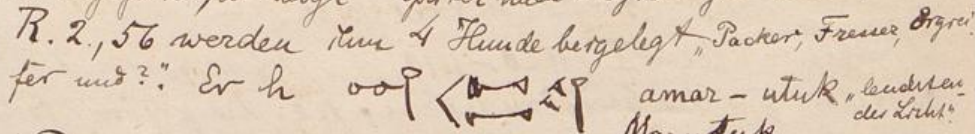 R. 2., 56 werden ihm 4 Hunde beigelegt „Packer, Fresser, Ergrei-
fer und?“. Er h amar – utuk „leuchten-
des Licht“.